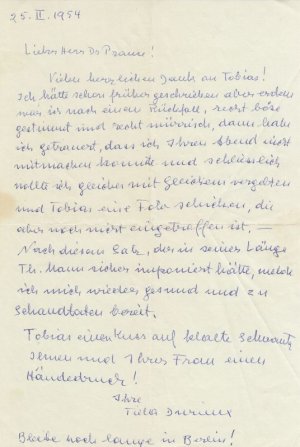 25. II. 1954
Lieber Herr Dr
Vielen herzlichen Dank an Tobias!
Ich hätte schon früher geschrieben aber erstens
war ich nach einem Rückfall, recht böse
gestimmt und recht mürrisch, dann habe
ich getrauert, dass ich Ihren Abend nicht
mitmachen konnte und schliesslich
wollte ich gleiches mit Gleichem vergelten
und Tobias eine Foto schicken, die
aber noch nicht eingetroffen ist, —
Nach diesem Satz, der in seiner Länge
Th. Mann sicher imponiert hätte, melde
ich mich wieder gesund und zu
Schandtaten bereit.
Tobias einen Kuss auf
Ihnen und Ihrer Frau einen
Händedruck!
Ihre
Tilla Durieux
Bleibe noch lange in Berlin!